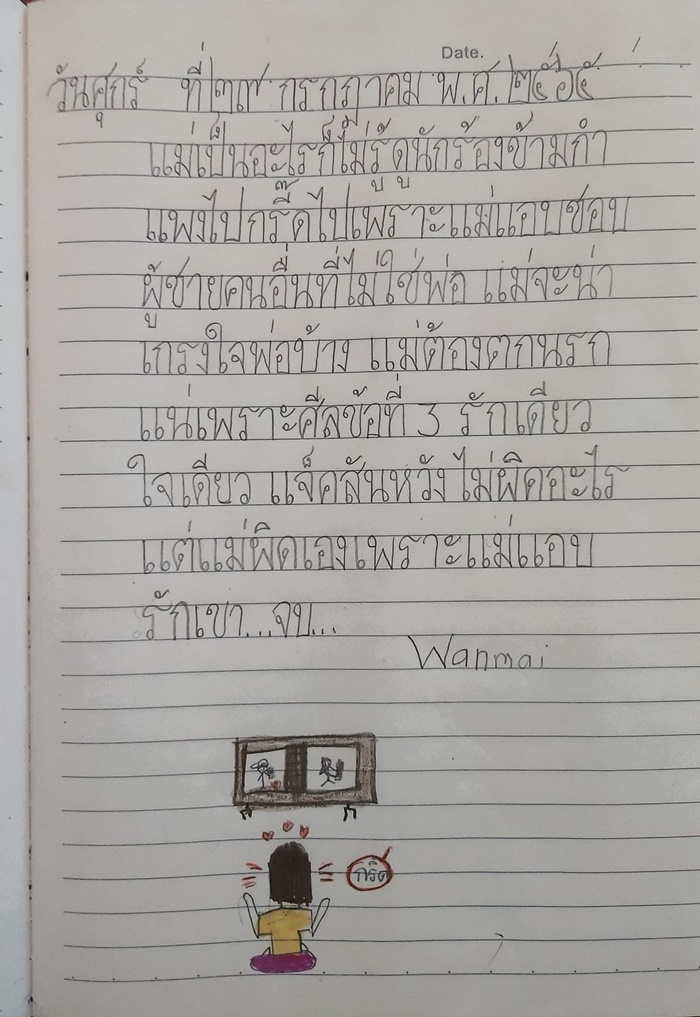 Date.
วันศุกร์ ที่ ๒๙ กรกฎาคม พ.ศ. ๒๕๖๕
แม่เป็นอะไรก็ไม่รู้ดูนักร้องข้ามกำ
แพงไปกรี๊ดไปเพราะแม่แอบชอบ
ผู้ชายคนอื่นที่ไม่ใช่พ่อ แม่จะน่า
เกรงใจพ่อบ้าง แม่ต้องตกนรก
แน่เพราะศีลข้อที่ 3 รักเดียว
ใจเดียว แจ็คสันหวัง ไม่ผิดอะไร
แต่แม่ผิดเองเพราะแม่แอบ
รักเขา...จบ...
Wanmai
กรี๊ด